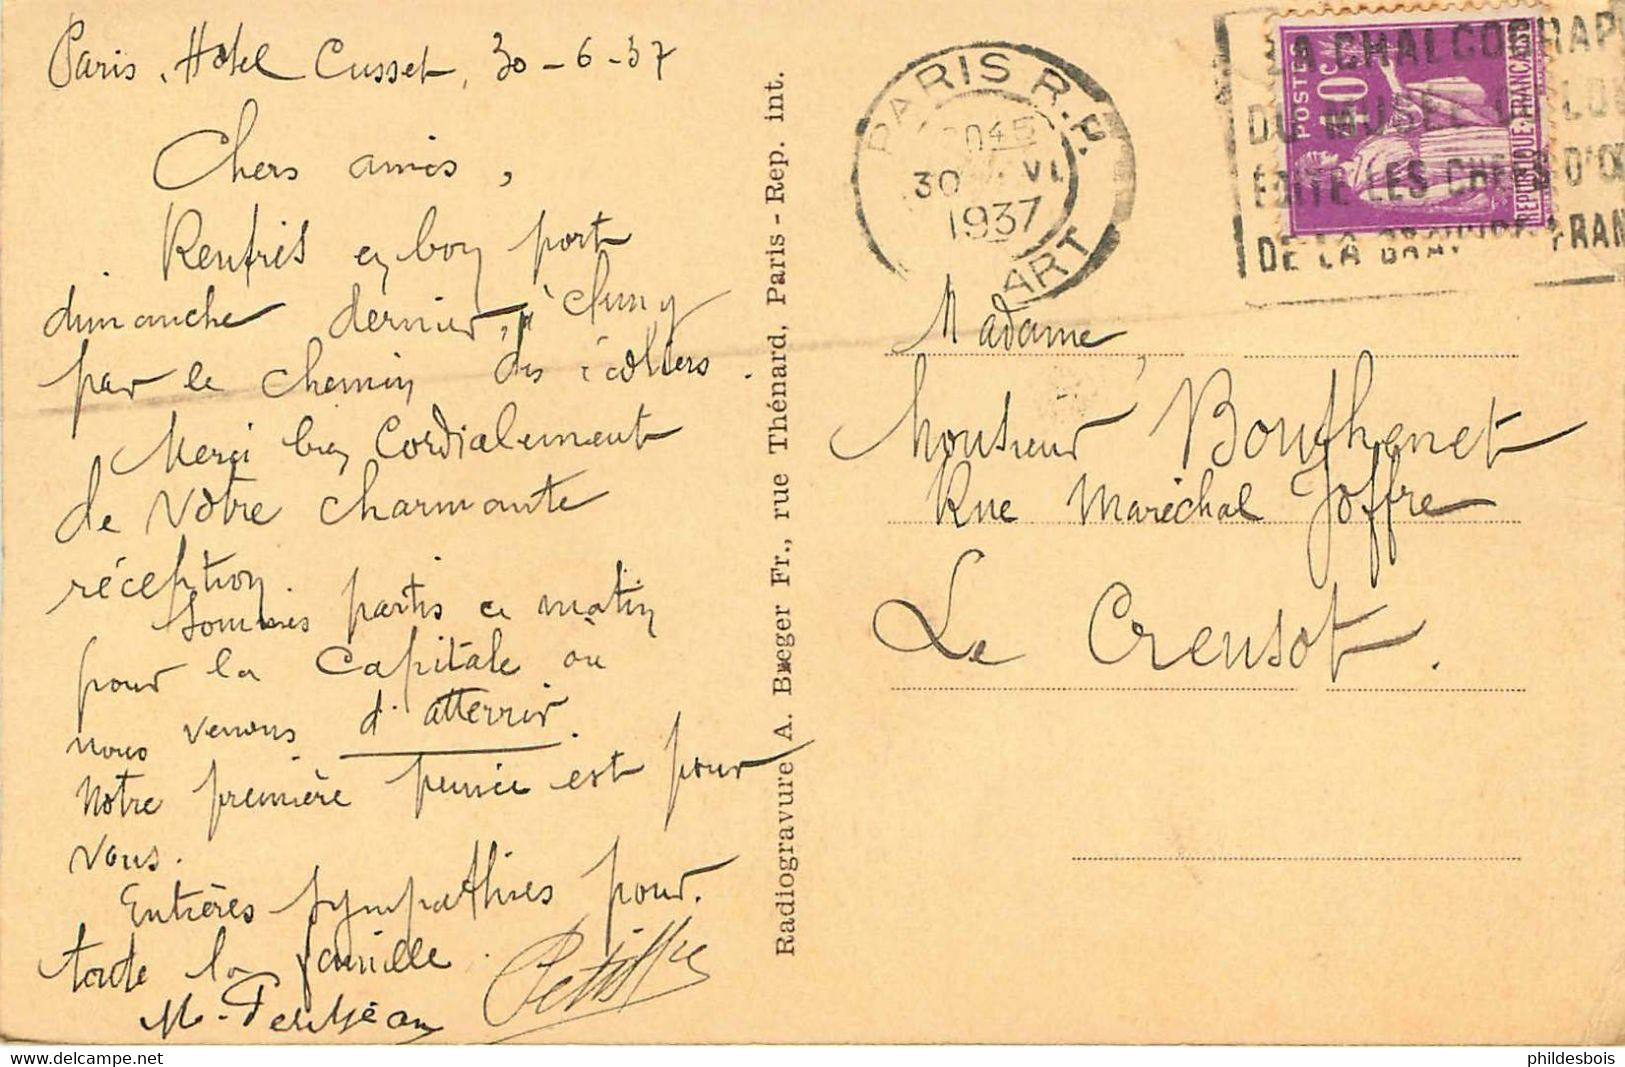 Paris, Hôtel Cusset, 30-6-37
Chers amis,
Rentrés en bon port
dimanche dernier, à Cluny
par le chemin des écoliers.
Merci bien Cordialement
de votre charmante
réception.
Sommes partis ce matin
pour la capitale où
nous venons d'atterrir.
Notre première pensée est pour
vous.
Entières sympathies pour
toute la famille.
M. Petitjean
Radiogravure A. Breger Fr., rue Thénard, Paris - Rep. int.
PARIS R.P.
30 VI
1937
ART
LA CHALCOGRAP
DU MUSEE DU LOU
EDITE LES CHEFS D'OE
DE LA GRAVURE FRAN
POSTES
40c
REPUBLIQUE FRANCAISE
Madame,
Monsieur Bouthenet
Rue Maréchal Joffre
Le Creusot.
phildesbois